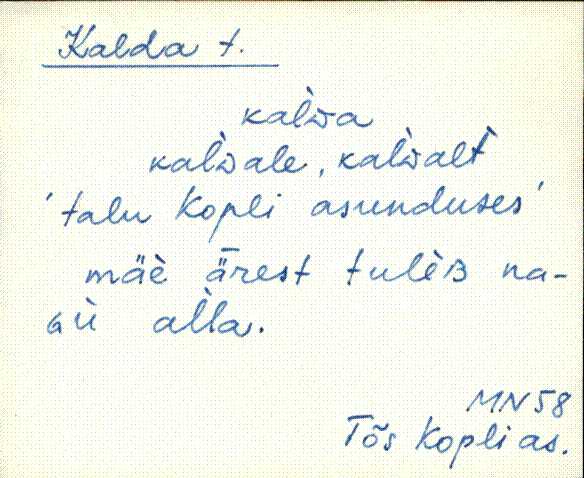 Kalda t.
kal̀ᴅa
kal̀ᴅale, kal̀ᴅalt
'talu Kopli asunduses'
mäè ǟrest tulèiʙ na-
ɢù al̀la.
MN58
Tõs Koplias.